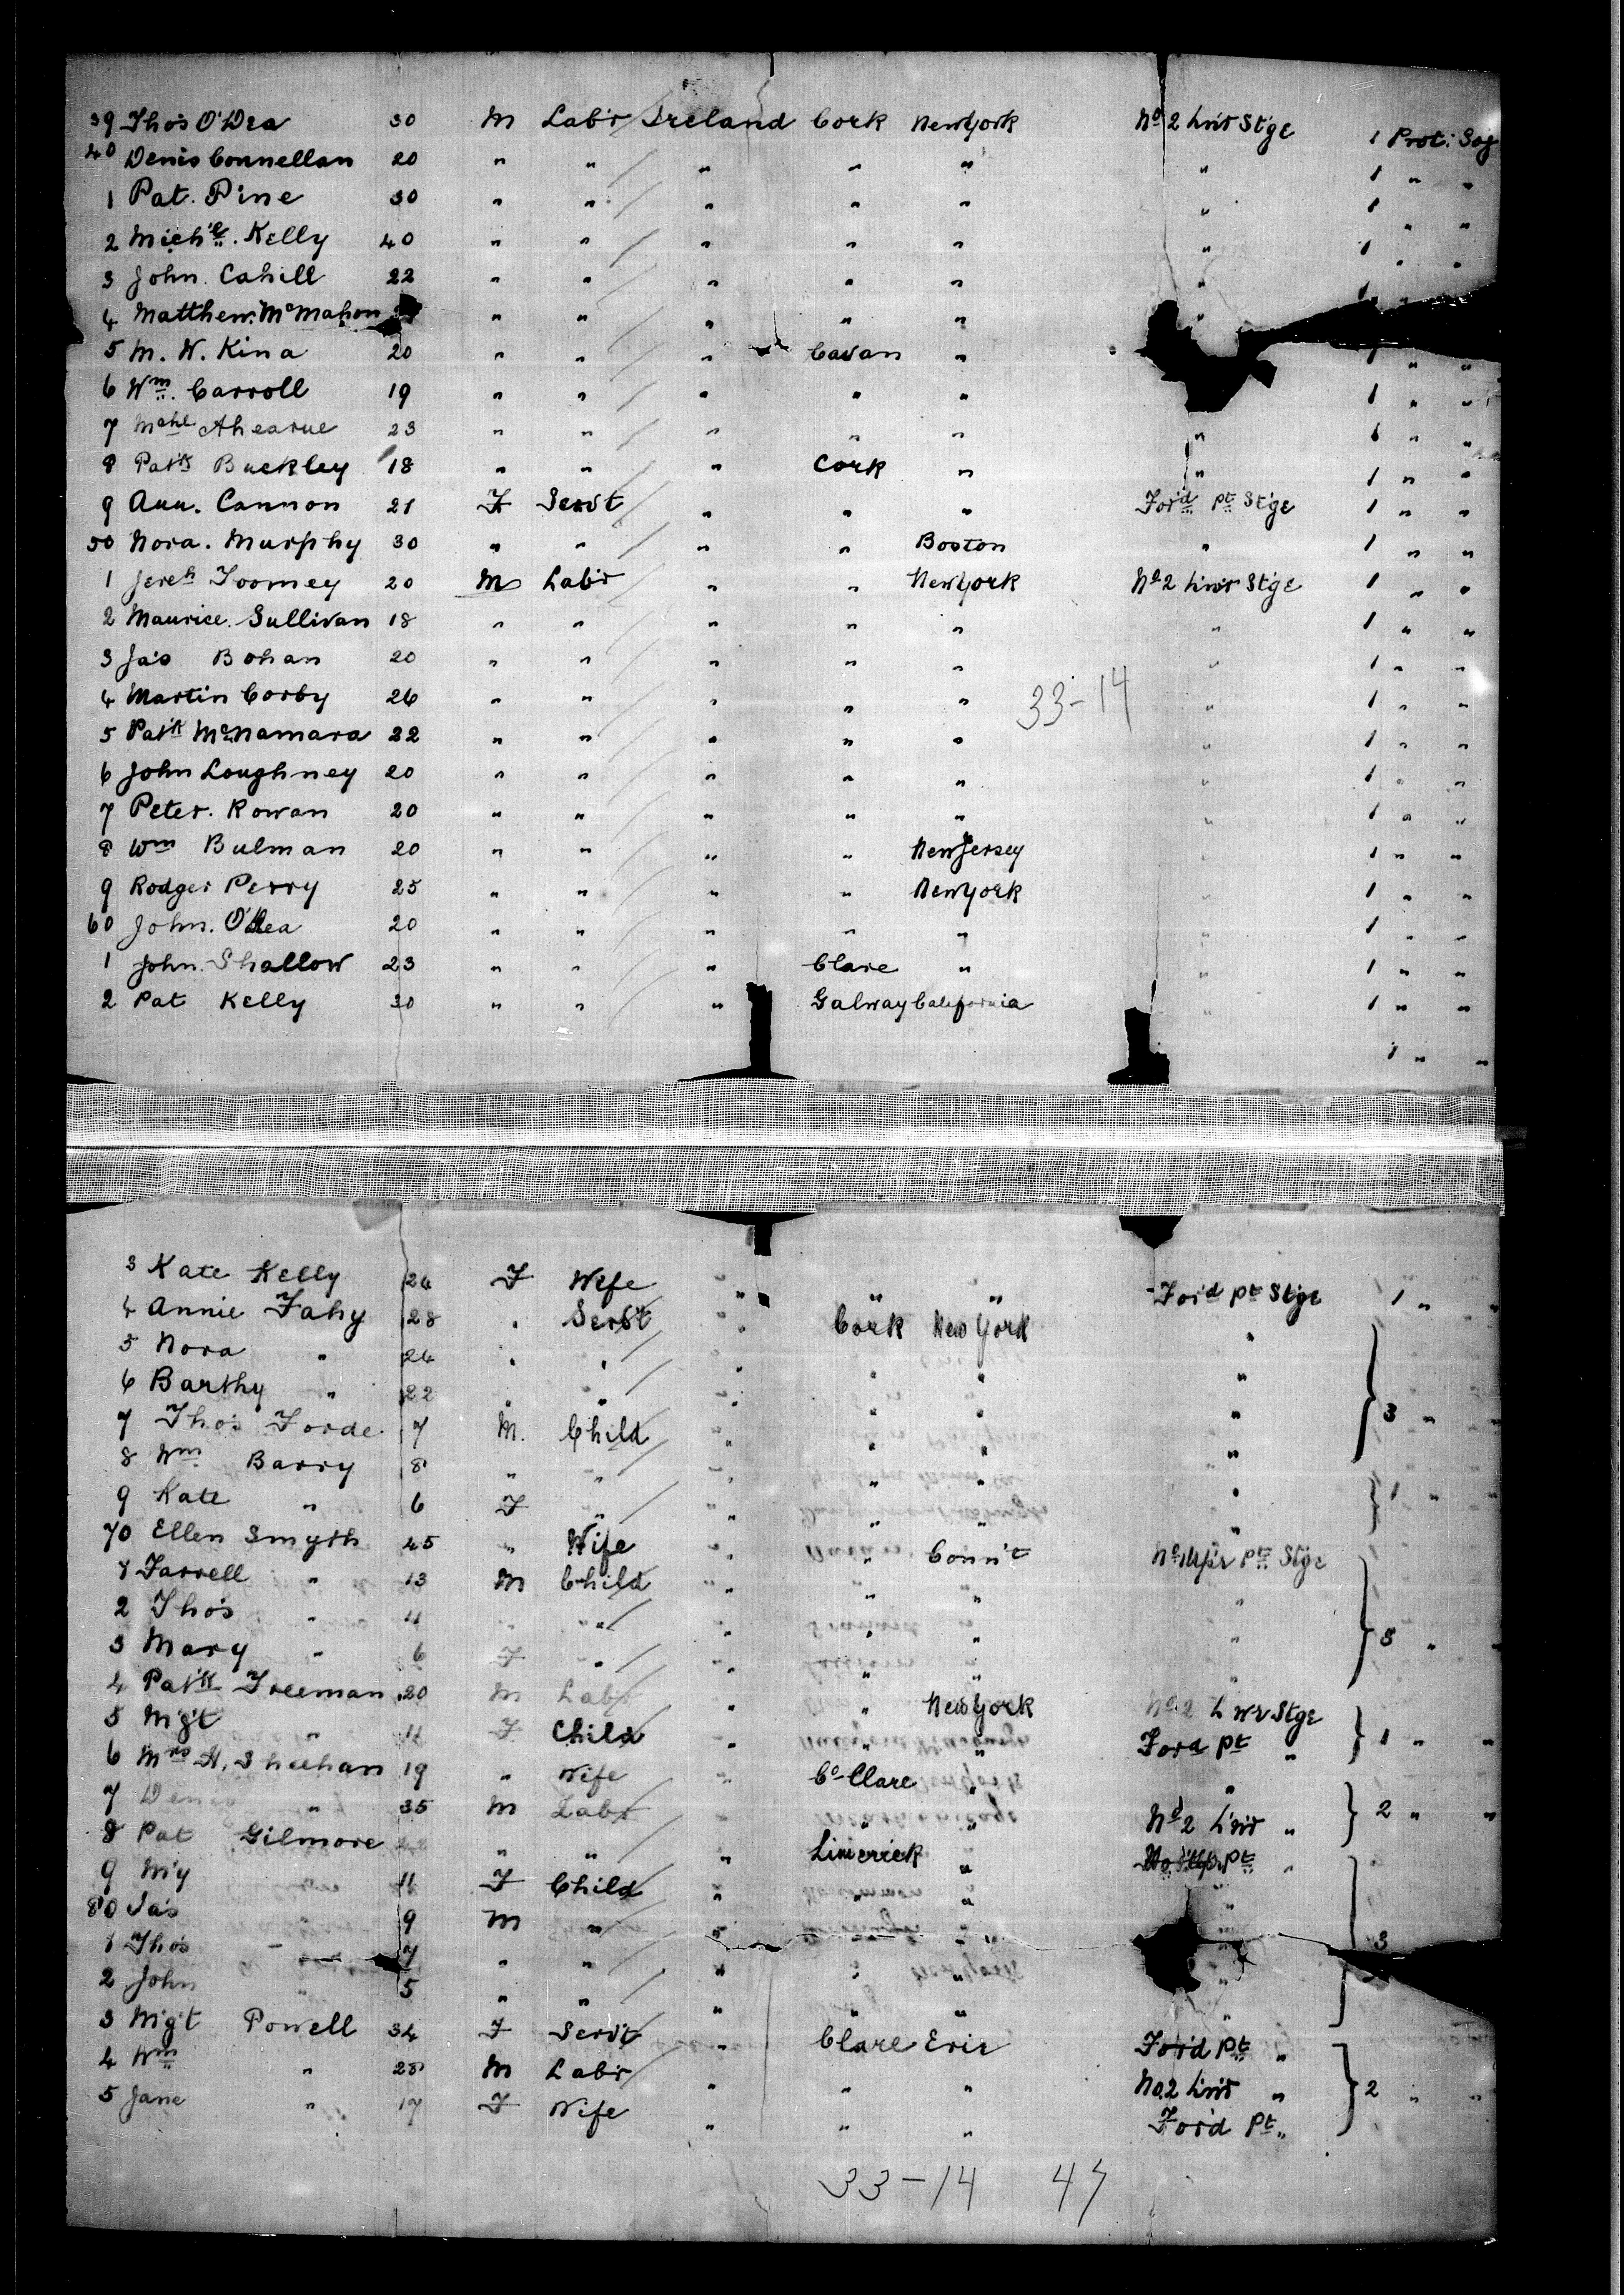 39 Tho's O'Dea 30 M Lab'r Ireland Cork New York No 2 Lwr St'ge 1 Prot: Sog
40 Denis Connellan 20 " " " " " " 1 " "
1 Pat. Pine 30 " " " " " " 1 " "
2 Mich'l. Kelly 40 " " " " " " 1 " "
3 John. Cahill 22 " " " " " " 1 " "
4 Matthew. McMahon " " " " " "
5 M. W. Kina 20 " " " Cavan " 1 " "
6 Wm. Carroll 19 " " " " " 1 " "
7 Mchl Ahearne 23 " " " " " " 1 " "
8 Patk Buckley 18 " " " Cork " " 1 " "
9 Ann. Cannon 21 F Serv't " " " For'd pt St'ge 1 " "
50 Nora. Murphy 30 " " " " Boston " 1 " "
1 Jereh Toomey 20 M Lab'r " " New York No 2 Lwr St'ge 1 " "
2 Maurice. Sullivan 18 " " " " " " 1 " "
3 Ja's Bohan 20 " " " " " " 1 " "
4 Martin Corby 26 " " " " " " 1 " "
33-14
5 Patk McNamara 22 " " " " " " 1 " "
6 John Loughney 20 " " " " " " 1 " "
7 Peter. Rowan 20 " " " " " " 1 " "
8 Wm Bulman 20 " " " " New Jersey " 1 " "
9 Rodger Perry 25 " " " " New York " 1 " "
60 John. O'Dea 20 " " " " " " 1 " "
1 John. Shallow 23 " " " Clare " " 1 " "
2 Pat Kelly 30 " " " Galway California " 1 " "
1 " "
3 Kate Kelly 24 F Wife " " " For'd pt St'ge 1 " "
4 Annie Fahy 28 " Serv't " Cork New York "
5 Nora " 24 " " " " " "
6 Barthy " 22 " " " " " " } 3 " "
7 Tho's Forde 7 M. Child " " " "
8 Wm Barry 8 " " " " " "
9 Kate " 6 F " " " " " } 1 " "
70 Ellen Smyth 45 " Wife " " Conn't pt St'ge
1 Farrell " 13 M Child " " " "
2 Tho's " 11 " " " " " " } 3 " "
3 Mary " 6 F " " " " "
4 Patk Freeman 20 M Lab'r " " New York No 2 Lwr St'ge
5 Mg't " 11 F Child " " " For'd pt " } 1 " "
6 Mrs H. Sheehan 19 " Wife " Co Clare " "
7 Denis " 35 M Lab'r " " " No 2 Lwr " } 2 " "
8 Pat Gilmore " " " Limerick " pt "
9 M'y 11 F Child " " "
80 Ja's 9 M " " " " } 3
1 Tho's 7 " " " " "
2 John 5 " " " " " "
3 Mg't Powell 34 F Serv't " Clare Erie For'd pt "
4 Wm " 28 M Lab'r " " " No. 2 Lwr " } 2 " "
5 Jane " 17 F Wife " " " For'd pt "
33-14 47